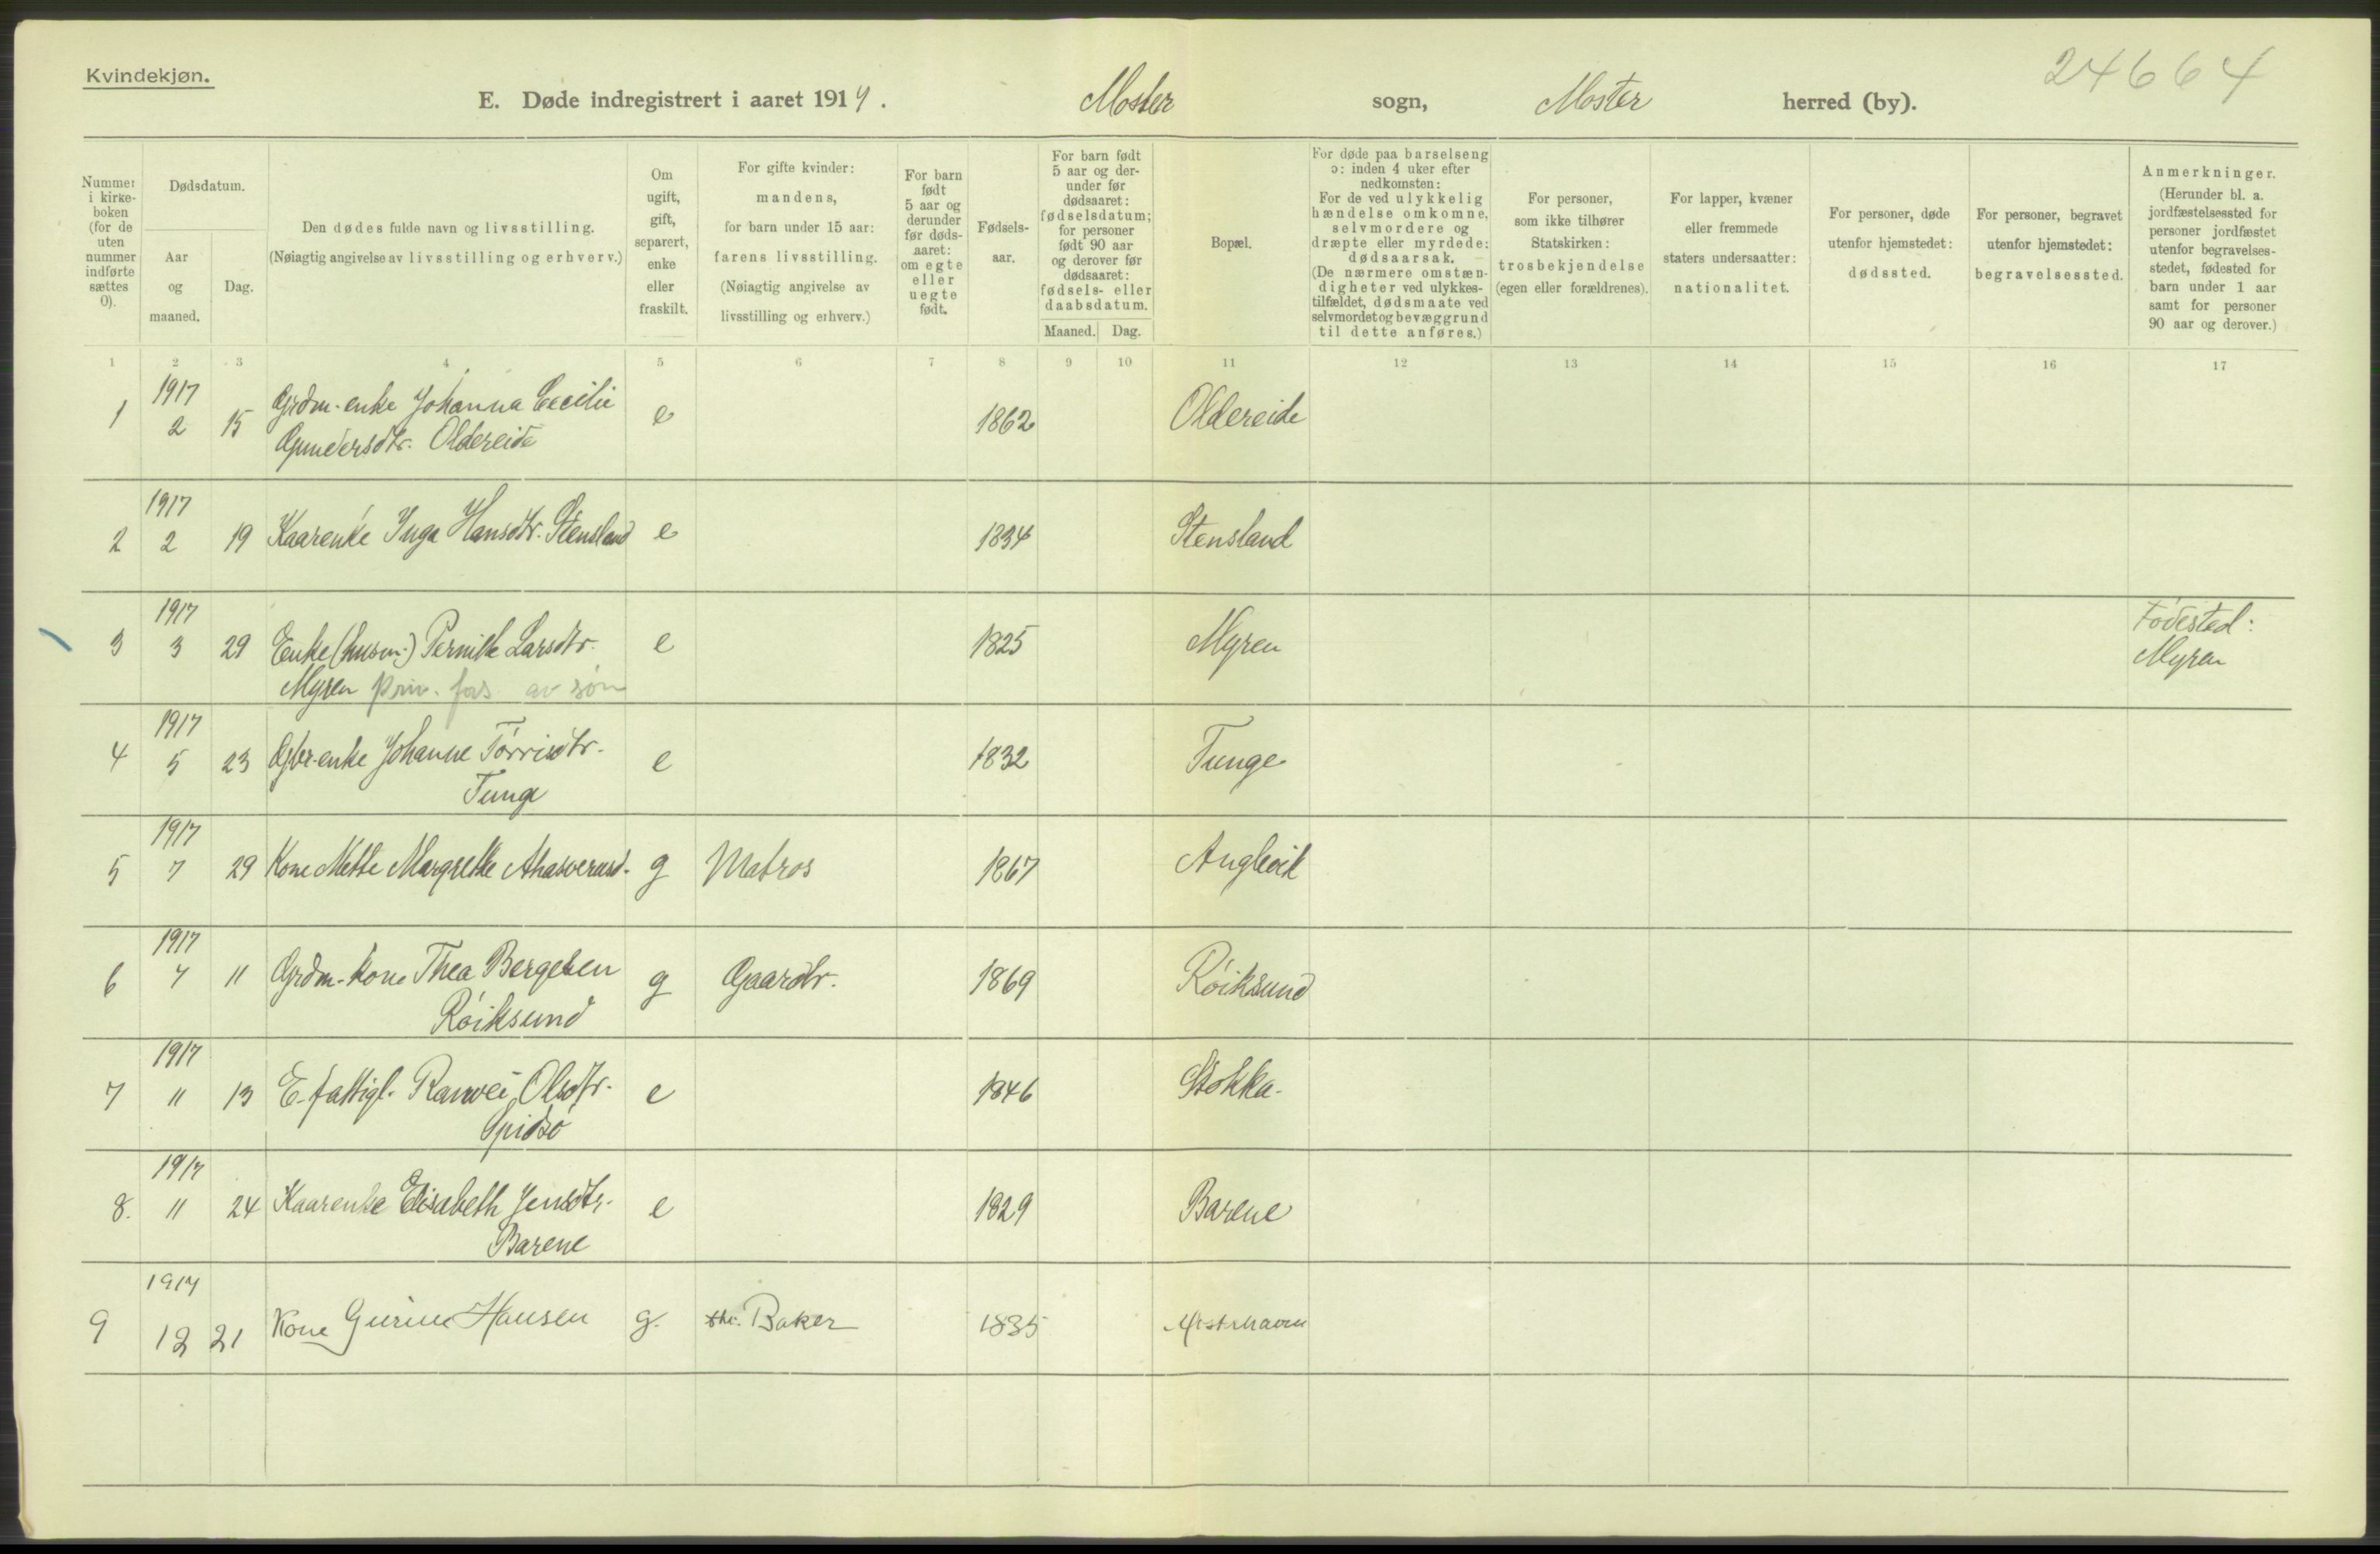 Kvindekjøn.
24664
E. Døde indregistrert i aaret 1917. Moster sogn, Moster herred (by).
Nummer i kirkeboken (for de uten nummer indførte sættes 0).
Dødsdatum.
Aar og maaned.
Dag.
Den dødes fulde navn og livsstilling.
(Nøiagtig angivelse av livsstilling og erhverv.)
Om ugift, gift, separert, enke eller fraskilt.
For gifte kvinder: mandens, for barn under 15 aar: farens livsstilling. (Nøiagtig angivelse av livsstilling og erhverv.)
For barn født 5 aar og derunder før dødsaaret: om egte eller uegte født.
Fødselsaar.
For barn født 5 aar og derunder før dødsaaret: fødselsdatum; for personer født 90 aar og derover før dødsaaret: fødsels- eller daabsdatum.
Maaned. Dag.
Bopæl.
For døde paa barselseng ɔ: inden 4 uker efter nedkomsten: For de ved ulykkelig hændelse omkomne, selvmordere og dræpte eller myrdede: dødsaarsak. (De nærmere omstændigheter ved ulykkestilfældet, dødsmaate ved selvmordet og bevæggrund til dette anføres.)
For personer, som ikke tilhører Statskirken: trosbekjendelse (egen eller forældrenes).
For lapper, kvæner eller fremmede staters undersaatter: nationalitet.
For personer, døde utenfor hjemstedet: dødssted.
For personer, begravet utenfor hjemstedet: begravelsessted.
Anmerkninger. (Herunder bl. a. jordfæstelsessted for personer jordfæstet utenfor begravelsesstedet, fødested for barn under 1 aar samt for personer 90 aar og derover.)
1 2 3 4 5 6 7 8 9 10 11 12 13 14 15 16 17
1917
1 2 15 Grdm. enke Johanna Cecilie e 1862 Oldereide
Gundersdtr. Oldereide
1917
2 2 19 Kaarenke Inga Hansdtr. Stensland e 1834 Stensland
1917
3 3 29 Enke (husm.) Pernille Larsdtr. e 1825 Myren Fødested:
Myren priv. fors av søn Myren
1917
4 5 23 Gbr. enke Johanne Tørrisdtr. e 1832 Tunge
Tunge
1917
5 7 29 Kone Mette Margrethe Ahasverusd. g Matros 1867
1917
6 7 11 Grdm. kone Thea Bergesen g Gaardbr. 1869 Røiksund
Røiksund
1917
7 11 13 E. fattigl. Ranvei Olsdtr. e 1846 Stokka.
Spidsø
1917
8. 11 24 Kaarenke Elisabeth Jensdtr. e 1829 Barene
Barene
1917
9 12 21 Kone Gurine Hansen g. Baker 1835